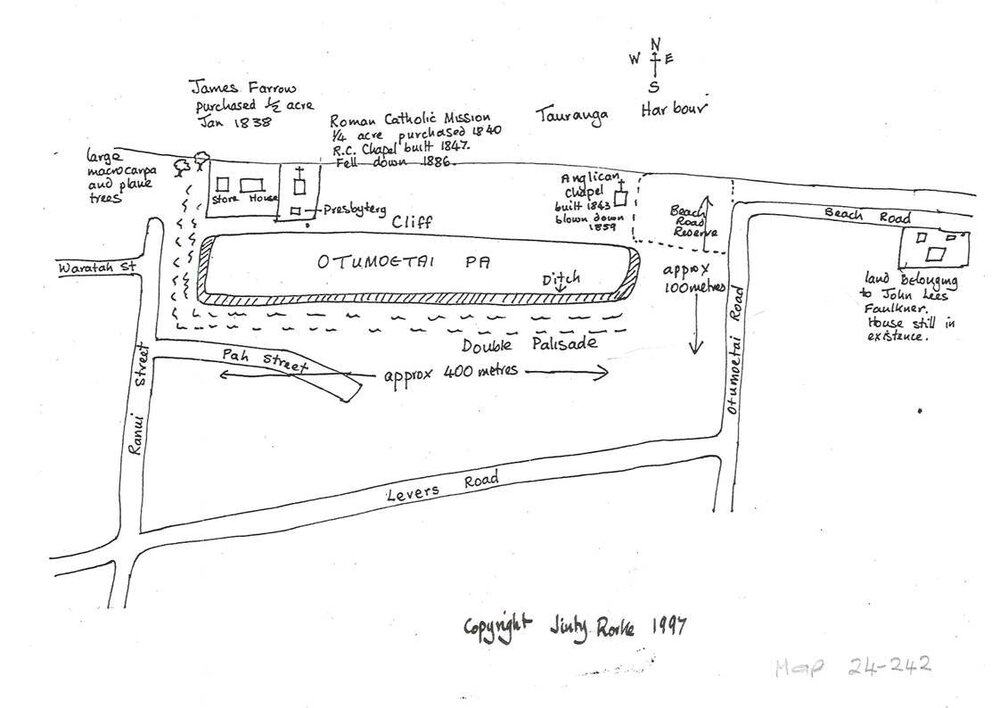 N
W E
S
James Farrow
purchased ½ acre
Jan 1838
Roman Catholic Mission
¼ acre purchased 1840
R.C. Chapel built 1847.
Fell down 1886.
Tauranga Harbour
large
macrocarpa
and plane
trees
Store House
Presbyterg
Anglican
Chapel
built 1843
blown down
1859
Beach
Road
Reserve
Beach Road
Cliff
OTUMOETAI PA
Ditch
Waratah St
approx
100 metres
land belonging
to John Lees
Faulkner.
House still in
existence.
Double Palisade
Pah Street
approx 400 metres
Ranui Street
Otumoetai Road
Levers Road
Copyright Jinty Rorke 1997
Map 24-242